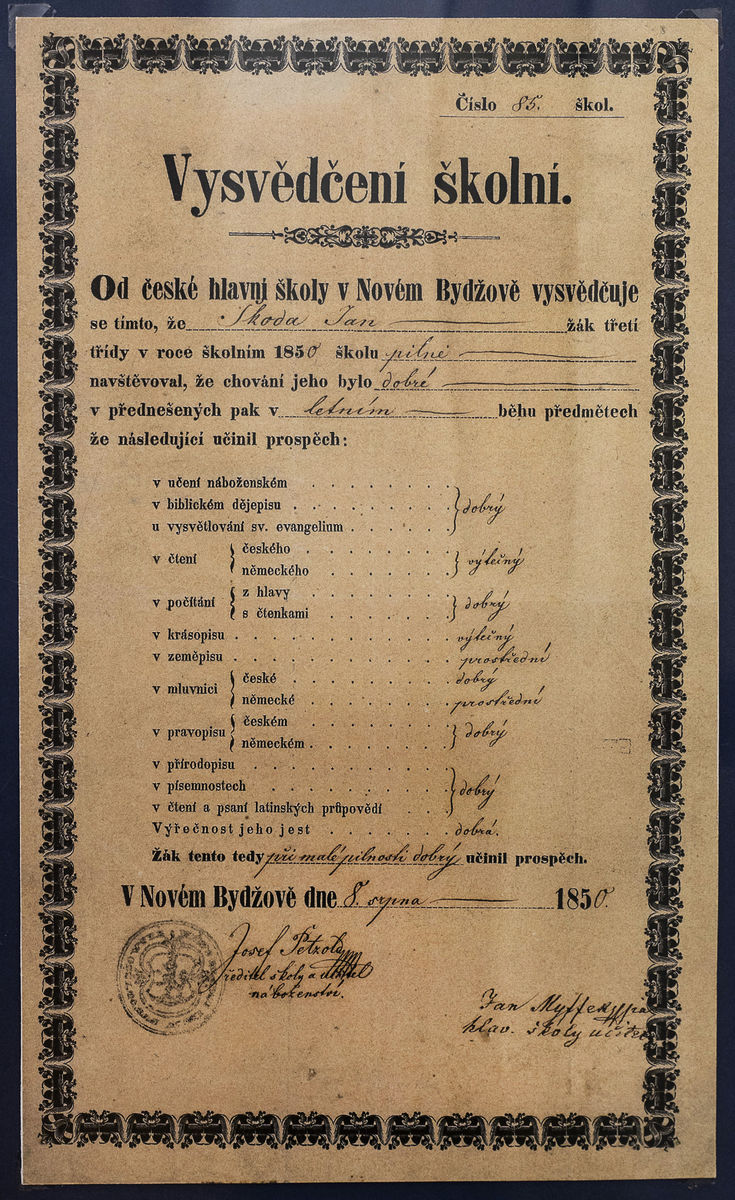 Číslo 85. škol.
Vysvědčení školní.
Od české hlavní školy v Novém Bydžově vysvědčuje
se tímto, že Škoda Jan žák třetí
třídy v roce školním 1850 školu pilně
navštěvoval, že chování jeho bylo dobré
v přednešených pak v letním běhu předmětech
že následující učinil prospěch:
v učení náboženském
v biblickém dějepisu
u vysvětlování sv. evangelium } dobrý
v čtení { českého
německého } výtečný
v počítání { z hlavy
s čtenkami } dobrý
v krásopisu výtečný
v zeměpisu prostřední
v mluvnici { české dobrý
německé prostřední
v pravopisu { českém
německém } dobrý
v přírodopisu
v písemnostech
v čtení a psaní latinských průpovědí } dobrý
Výřečnost jeho jest dobrá.
Žák tento tedy při malé pilnosti dobrý učinil prospěch.
V Novém Bydžově dne 8. srpna 1850.
Josef
ředitel školy a učitel
náboženství.
Jan
hlav. školy učitel